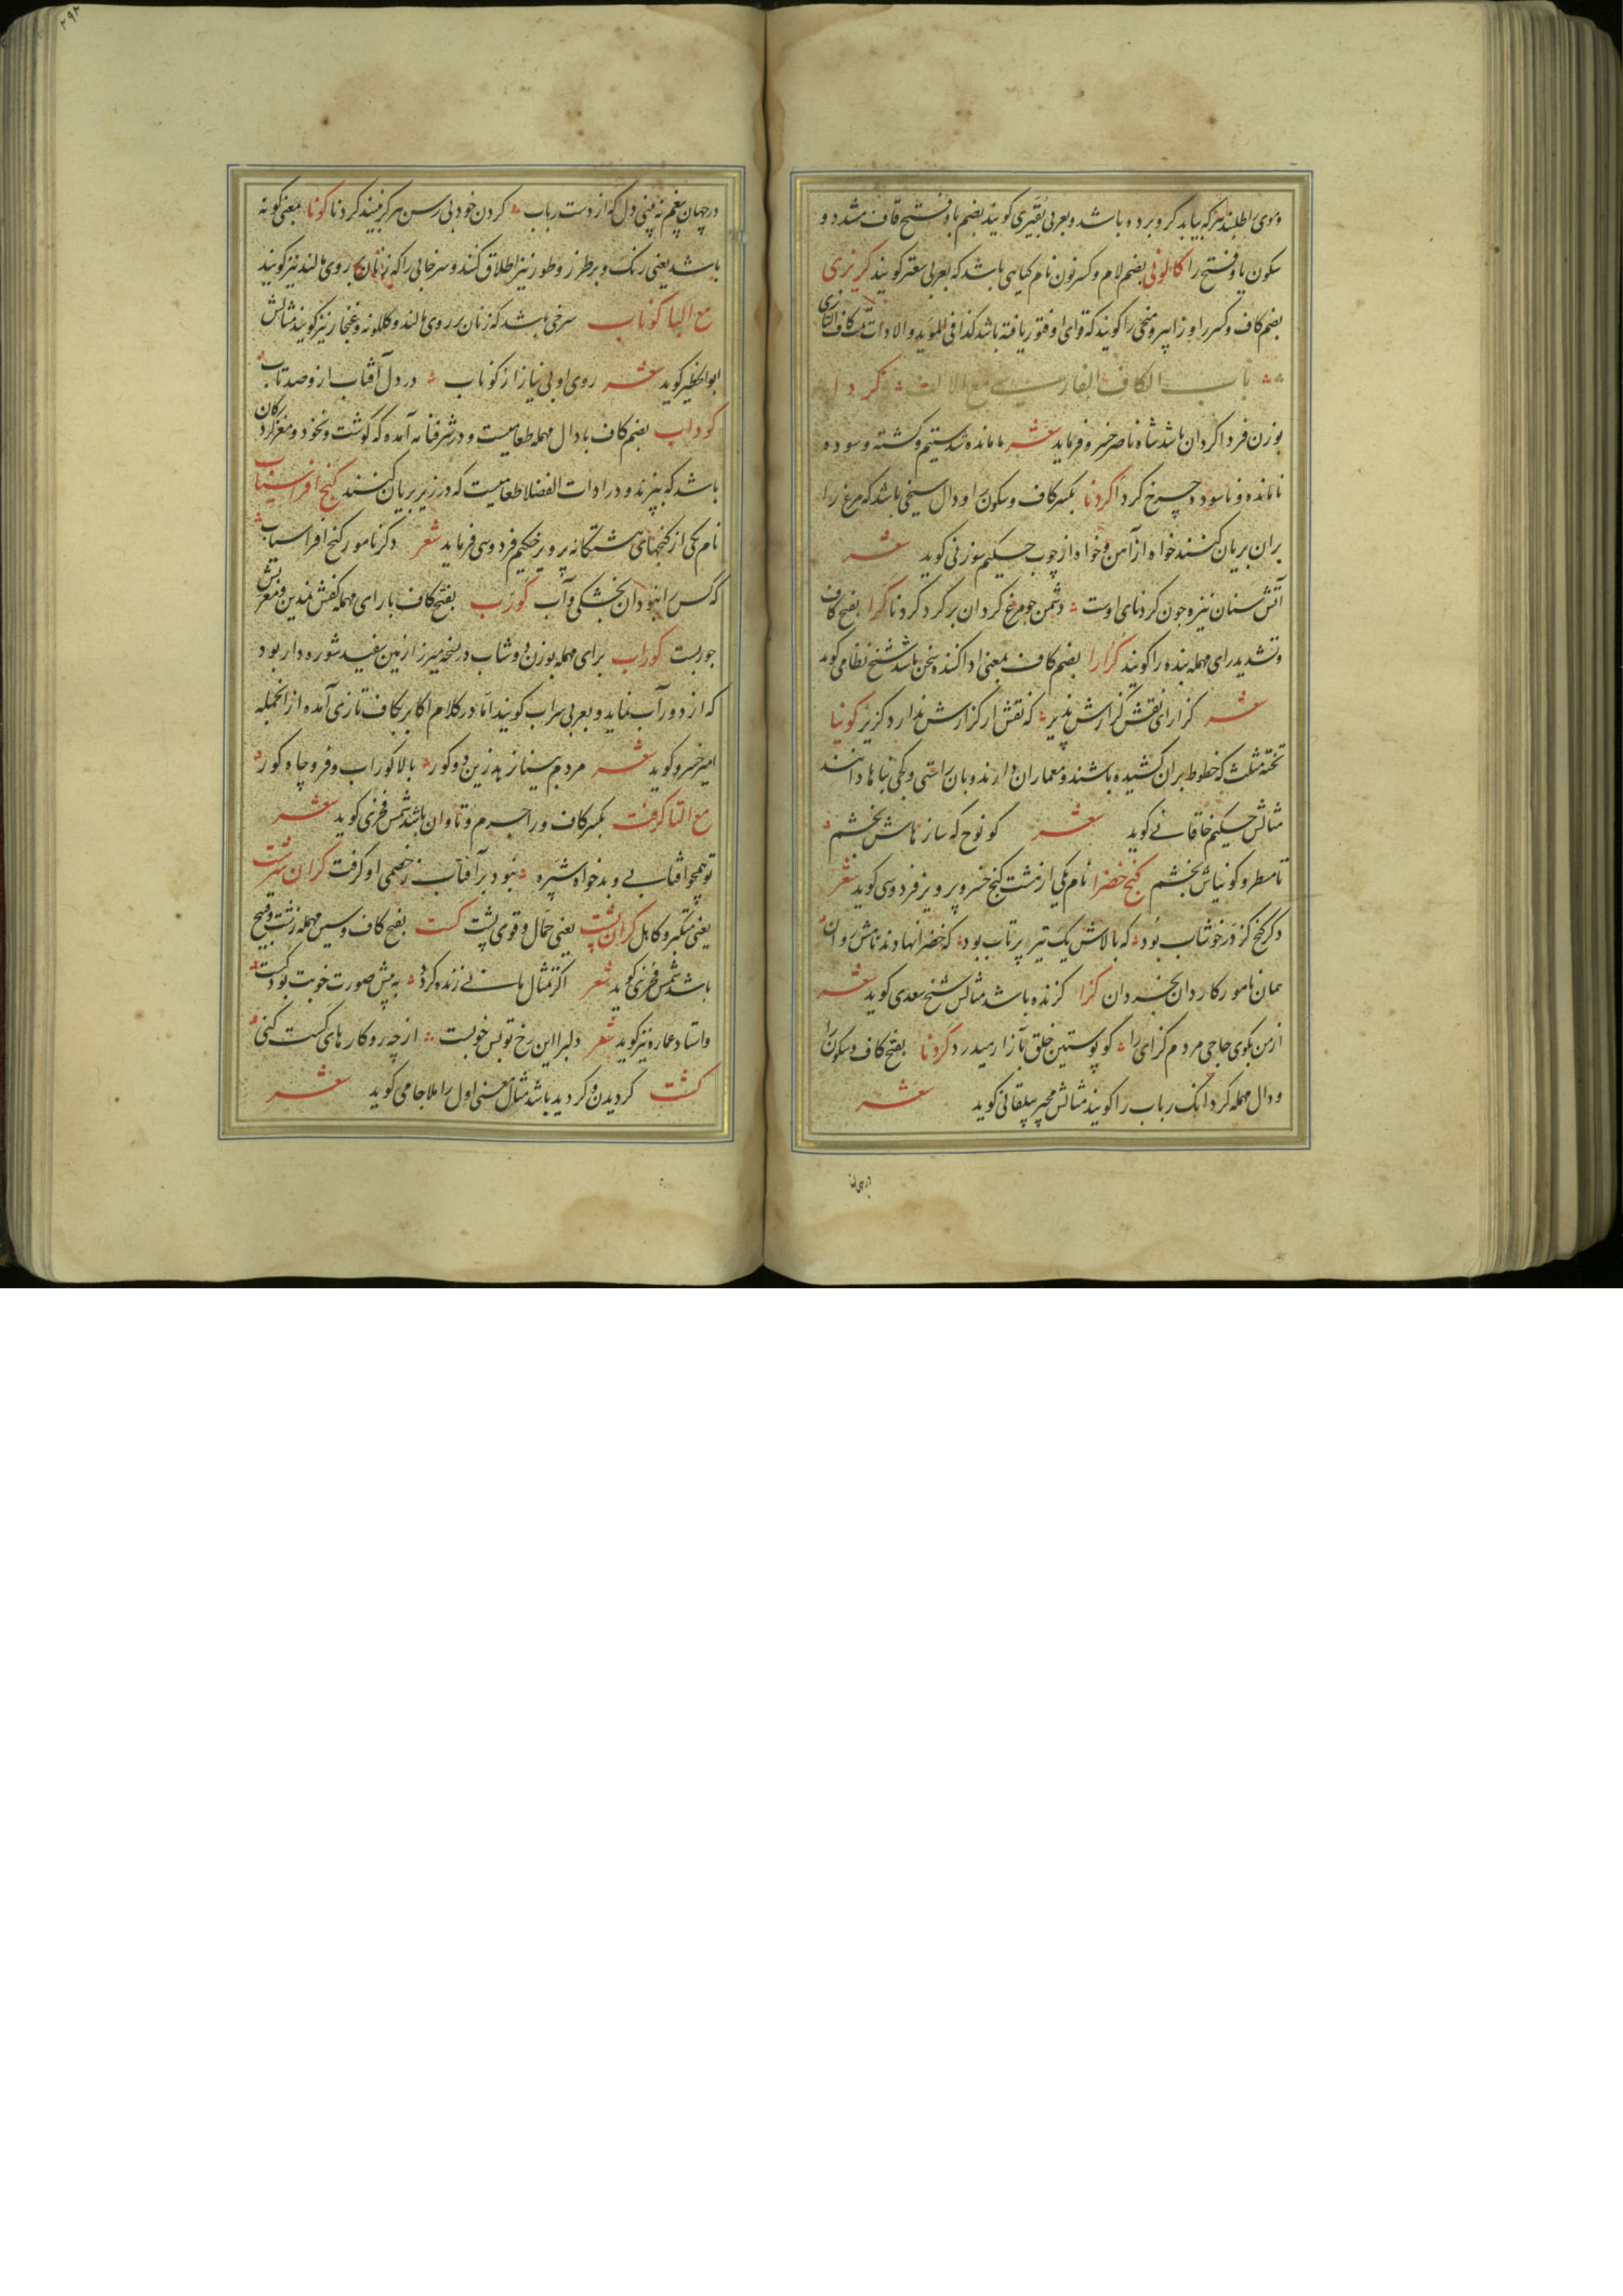 وموی را طلبند هرکه بیابد کرو برده باشد و بعربی بقیری کویند بضم با و فتح قاف مشدد و
سکون یا و فتح را کالونی بضم لام و کسر نون نام کیاهی باشد که بعربی سعتر کویند کریزی
بضم کاف و کسر را و زا پیر و منحنی را کویند که قوای او فتور یافته باشد کذا فی المؤید و الادات
باب الکاف الفارسی مع الالف کردا
بوزن فردا کردان باشد شاه ناصر خسرو فرماید شعر ما مانده شدستیم و کشته و سوده
نامانده و ناسوده چرخ کردا کردنا بکسر کاف و سکون را و دال سیخی باشد که مرغ را
بران بریان کنند خواه از آهن و خواه از چوب حکیم سوزنی کوید شعر
آتش سنان نیزه چون کردنای اوست دشمن چو مرغ کردان بر کرد کردنا کرا بفتح کاف
و تشدید رای مهمله بنده را کویند کزارا بضم کاف بمعنی ادا کننده سخن باشد شیخ نظامی کوید
شعر کزارای نقش کزارش پذیر که نقش از کزارش ندارد کزیر کونیا
تخته مثلث که خطوط بران کشیده باشند و معماران دارند و بان راستی و کجی بناها دانند
مثالش حکیم خاقانی کوید شعر کو نوح که سازهاش بخشم
تا مسطر و کونیاش بخشم کنج خضرا نام یکی از هشت کنج خسرو پرویز فردوسی کوید شعر
دکر کنج کز در خوشاب بود که بالاش یک تیر پرتاب بود که خضرا نهادند نامش روان
همان نامور کاردان بخردان کزا کزنده باشد مثالش شیخ سعدی کوید شعر
از من بکوی حاجی مردم کزای را کو پوستین خلق بآزار میدرد کردنا بفتح کاف و سکون را
و دال مهمله کردانک رباب را کویند مثالش مجیر بیلقانی کوید شعر
در جهان
۲۹۲
در جهان بیغم نه بینی دل که از دست رباب کردن خود بی رسن هرکز نبیند کردنا کونا بمعنی کونه
باشد یعنی رنک و بر طرز و طور نیز اطلاق کنند و سرخابی را که زنان بر روی مالند نیز کویند
مع البا کوناب سرخی باشد که زنان بر روی مالند و کلکونه و غنجار نیز کویند مثالش
ابوالخطیر کوید شعر روی او بی نیاز از کوناب در دل آفتاب از و صد تاب
کوداب بضم کاف با دال مهمله طعامیست و در شرفنامه آمده که کوشت و نخود و مغز کردکان
باشد که بپزند و در ادات الفضلا طعامیست که در زیر بریان کنند کنج افراسیاب
نام یکی از کنجهای هشتکانه پرویز حکیم فردوسی فرماید شعر دکر نامور کنج افراسیاب
که کس را نبود آن بخشکی و آب کورب بفتح کاف با رای مهمله کفش نمدین و معربش
جوربست کوراب برای مهمله بوزن دوشاب در نسخه میرزا زمین سفید شوره دار بود
که از دور آب نماید و بعربی سراب کویند اما در کلام اکابر بکاف تازی آمده از انجمله
امیر خسرو کوید شعر مردم بیناز پدر زین دو کور بالا کوراب و فرو چاه کور
مع التا کرفت بکسر کاف و را جرم و تاوان باشد شمس فخری کوید شعر
تو همچو آفتابی و بدخواه شپره نبود بر آفتاب ز خصمی او کرفت کران سرشت
یعنی متکبر و کاهل کران پشت یعنی حمال و قوی پشت کست بفتح کاف و سین مهمله زشت و قبیح
باشد شمس فخری کوید شعر اکر تمثال مانی زنده کردد به پیش صورت خوبت بود کست
و استاد عماره نیز کوید شعر دلبرا این رخ تو بس خوبست از چه رو کارهای کست کنی
کشت کردیدن و کردید باشد مثال معنی اول را ملا جامی کوید شعر